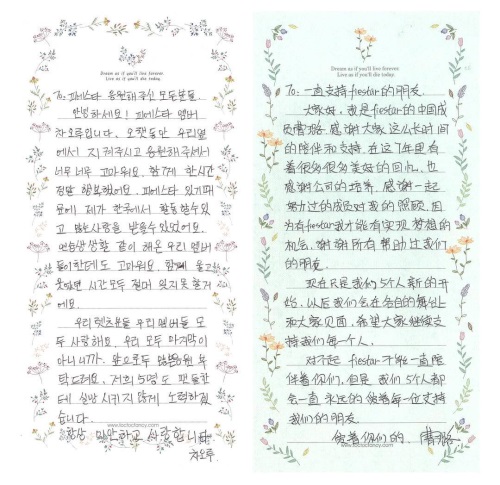 Dream as if you'll live forever.
Live as if you'll die today.
To. 피에스타 응원해주신 모든분들.
안녕하세요! 피에스타 멤버
차오루입니다. 오랫동안 우리옆
에서 지켜주시고 응원해주셔서
너무너무 고마워요. 함께 한시간
정말 행복했어요. 피에스타 있기때
문에 제가 한국에서 활동할수있
고 많은사랑을 받을수있었어요.
같이 해온 우리 멤버
들이한테도 고마워요. 함께 울고
웃었던 시간 모두 절대 잊지 못할거
에요.
우리 렛츠분들 우리멤버들 모
두 사랑해요. 우리 모두 마지막이
아니니까. 앞으로두 많은응원 부
탁드려요. 저희 5명도 팬들한
테 실망 시키지 않게 노력하겠
습니다.
항상 미안하고 사랑합니다
차오루.
Dream as if you'll live forever.
Live as if you'll die today.
To: 一直支持fiestar的朋友.
大家好, 我是fiestar的中国成
员曹璐. 感谢大家这么长时间
的陪伴和支持. 在这7年里有
着很多很多美好的回忆. 也
感谢公司的培养, 感谢一起
努力过的成员对我的照顾, 因
为有fiestar我才能有实现梦想的
机会. 谢谢所有帮助过我们
的朋友.
现在只是我们5个人新的开
始, 从后我们会在各自的舞台
和大家见面, 希望大家继续支
持我们每个人.
对不起 fiestar不能一直陪
伴着你们, 但是 我们5个人都
会一直永远的爱着每一位支持
我们的朋友.
爱着你们的, 曹璐